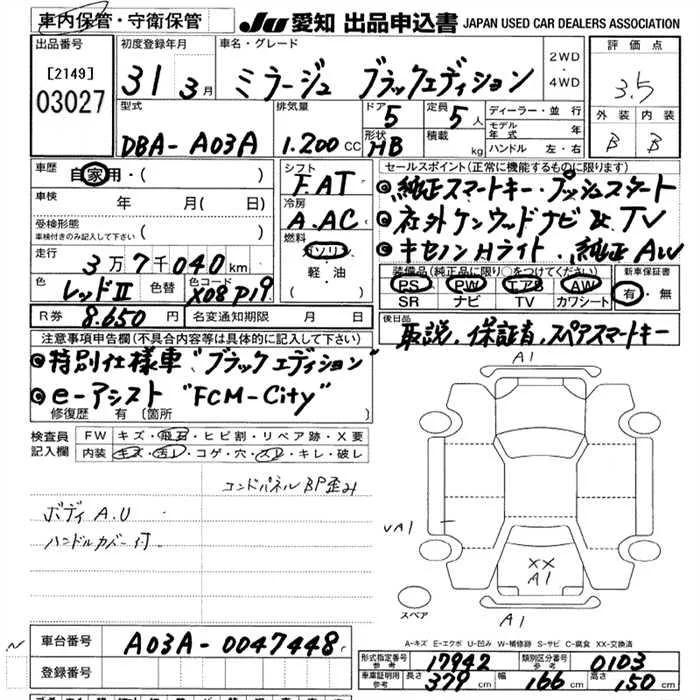 車内保管・守衛保管
JU 愛知 出品申込書 JAPAN USED CAR DEALERS ASSOCIATION
出品番号
[2149]
03027
初度登録年月
31 3月
車名・グレード
ミラージュ ブラックエディション
2WD
・
4WD
評価点
3.5
外装 内装
B B
型式
DBA-A03A
排気量
1.200 CC
ドア
5
形状
HB
定員
5人
積載
kg
ディーラー・並行
モデル年式 年
ハンドル 左・右
車歴
自家用・( )
車検
年 月( 日)
受検形態
車検付きのみ記入して下さい ( )
走行
3万7千040km
色
レッドII
色替
色コード
X08 P19
R券 8.650 円
名変通知期限 月 日
シフト
F.AT
冷房
A.AC
燃料
ガソリン
軽・油
セールスポイント(正常に機能するものに限ります)
純正スマートキー・プッシュスタート
社外ケンウッドナビ & TV
キセノンHライト.純正AW
装備品(純正品に限り○をつけてください)
PS PW エアB AW
SR ナビ TV カワシート
新車保証書
有・無
後日品
取説、保証書、スペアスマートキー
注意事項申告欄(不具合内容等は具体的に記入して下さい)
特別仕様車 "ブラックエディション"
e-アシスト "FCM-City"
修復歴 有 〔箇所 〕
検査員記入欄
FW キズ・飛石・ヒビ割・リペア跡・X要
内装 キズ・汚レ・コゲ・穴・スレ・キレ・破レ
コンドパネルBP歪み
ボディ A.U
ハンドルカバー付
A1
UA1
XX
A1
A1
スペア
A-キズ E-エクボ U-凹み W-補修跡 S-サビ C-腐食 XX-交換済
車台番号 A03A-0047448
登録番号
形式指定番号 参考 17942
類別区分番号 参考 0103
車庫証明用 参考 長さ 379 cm 幅 166 cm 高さ 150 cm